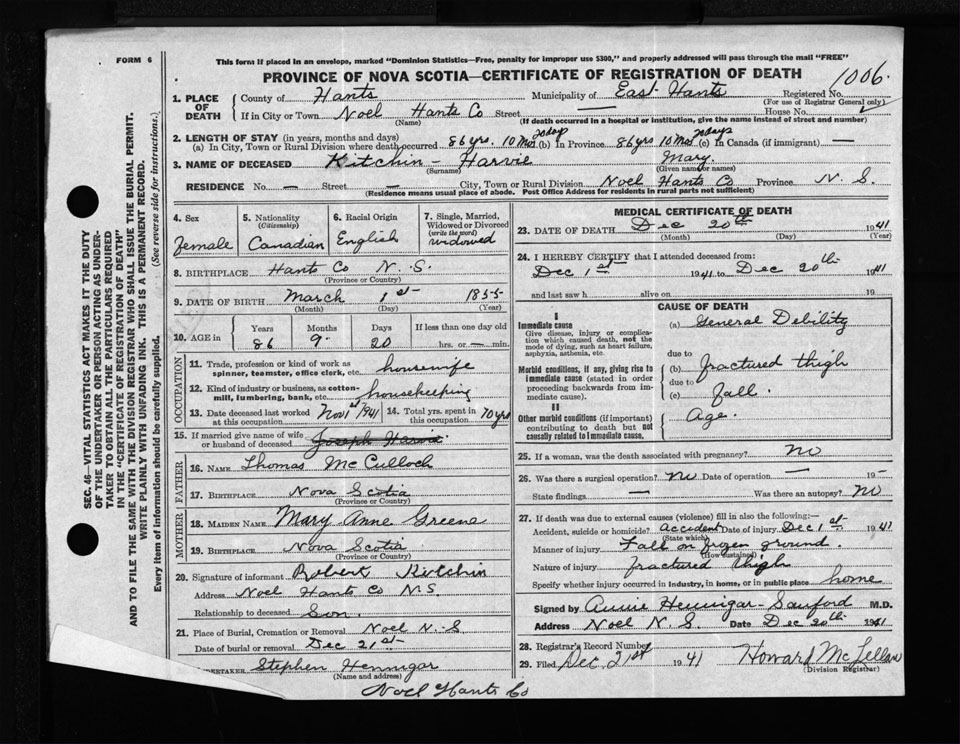 FORM 6
This form if placed in an envelope, marked "Dominion Statistics—Free, penalty for improper use $300," and properly addressed will pass through the mail "FREE"
PROVINCE OF NOVA SCOTIA—CERTIFICATE OF REGISTRATION OF DEATH
1006.
1. PLACE OF DEATH
County of Hants Municipality of East Hants Registered No.
(For use of Registrar General only)
If in City or Town Noel Hants Co Street — House No.
(Name) (If death occurred in a hospital or institution, give the name instead of street and number)
2. LENGTH OF STAY (in years, months and days)
(a) In City, Town or Rural Division where death occurred 86 yrs. 10 Mos 20 days (b) In Province 86 yrs 10 Mos 20 days (c) In Canada (if immigrant) —
3. NAME OF DECEASED Kitchin – Harvie Mary.
(Surname) (Given name or names)
RESIDENCE No. — Street — City, Town or Rural Division Noel Hants Co Province N. S.
(Residence means usual place of abode. Post Office Address for residents in rural parts not sufficient)
4. Sex
Female
5. Nationality
(Citizenship)
Canadian
6. Racial Origin
English
7. Single, Married, Widowed or Divorced
(write the word)
widowed
8. BIRTHPLACE Hants Co N. S.
(Province or Country)
9. DATE OF BIRTH March 1st 1855
(Month) (Day) (Year)
10. AGE in
Years Months Days If less than one day old
86 9 20 hrs. or — min.
OCCUPATION
11. Trade, profession or kind of work as spinner, teamster, office clerk, etc. housewife
12. Kind of industry or business, as cotton-mill, lumbering, bank, etc. housekeeping
13. Date deceased last worked at this occupation Nov 1st 1941 14. Total yrs. spent in this occupation 70 yrs
15. If married give name of wife or husband of deceased Joseph Harvie
FATHER
16. NAME Thomas McCulloch
17. BIRTHPLACE Nova Scotia
(Province or Country)
MOTHER
18. MAIDEN NAME Mary Anne Greene
19. BIRTHPLACE Nova Scotia
(Province or Country)
20. Signature of informant Robert Kitchin
Address Noel Hants Co N.S.
Relationship to deceased Son.
21. Place of Burial, Cremation or Removal Noel N.S
Date of burial or removal Dec 21st
UNDERTAKER Stephen Hennigar
(Name and address)
Noel Hants Co
MEDICAL CERTIFICATE OF DEATH
23. DATE OF DEATH Dec 20th 1941
(Month) (Day) (Year)
24. I HEREBY CERTIFY that I attended deceased from:
Dec 1st 1941 to Dec 20th 1941
and last saw h alive on 19
CAUSE OF DEATH
I
Immediate cause
Give disease, injury or complication which caused death, not the mode of dying, such as heart failure, asphyxia, asthenia, etc.
(a) General Debility
Morbid conditions, if any, giving rise to immediate cause (stated in order proceeding backwards from immediate cause).
due to
(b) fractured thigh
due to
(c) fall.
II
Other morbid conditions (if important) contributing to death but not causally related to immediate cause.
Age.
25. If a woman, was the death associated with pregnancy? no
26. Was there a surgical operation? no Date of operation — 19 –
State findings — Was there an autopsy? no
27. If death was due to external causes (violence) fill in also the following:
Accident, suicide or homicide? accident Date of injury Dec 1st 1941
(State which)
Manner of injury Fall on frozen ground.
(How sustained)
Nature of injury fractured thigh
Specify whether injury occurred in industry, in home, or in public place home
Signed by Annie Hennigar-Sanford M.D.
Address Noel N S Date Dec 20th 1941
28. Registrar's Record Number
29. Filed Dec 21st 1941 Howard McLellan
(Division Registrar)
SEC. 46—VITAL STATISTICS ACT MAKES IT THE DUTY
OF THE UNDERTAKER OR PERSON ACTING AS UNDER-
TAKER TO OBTAIN ALL THE PARTICULARS REQUIRED
IN THE "CERTIFICATE OF REGISTRATION OF DEATH"
AND TO FILE THE SAME WITH THE DIVISION REGISTRAR WHO SHALL ISSUE THE BURIAL PERMIT.
WRITE PLAINLY WITH UNFADING INK. THIS IS A PERMANENT RECORD.
Every item of information should be carefully supplied. (See reverse side for instructions.)